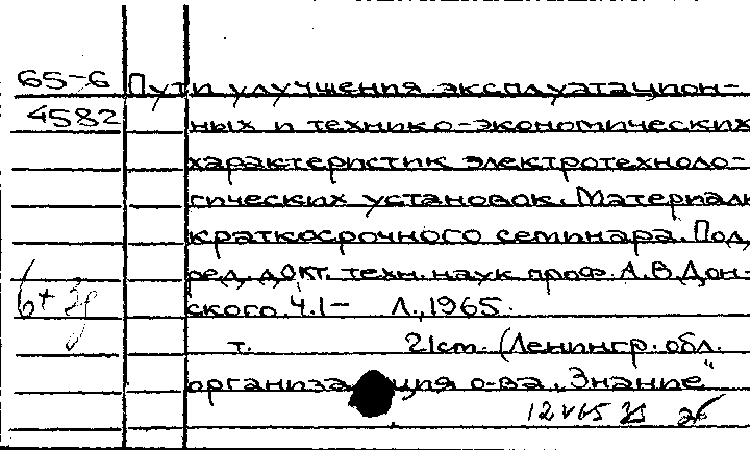 65-6 Пути улучшения эксплуатацион-
4582 ных и технико-экономических
характеристик электротехноло-
гических установок. Материалы
краткосрочного семинара. Под
ред. докт. техн. наук проф. А.В. Дон-
ского. Ч.1- Л., 1965.
т. 21 cm. (Ленингр. обл.
организация о-ва „Знание"
12 V 65